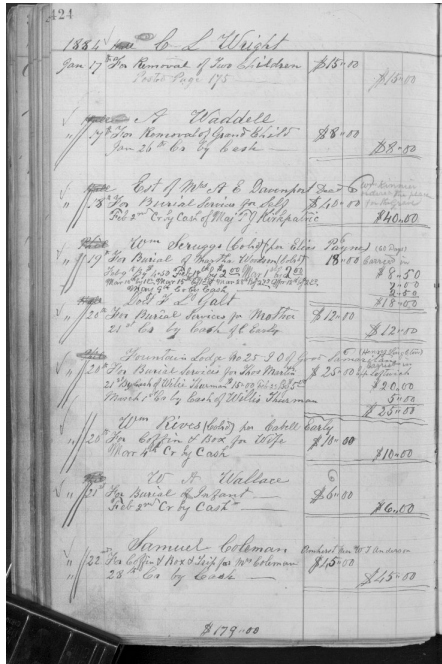 424
1884 C L Wright
Jan 17th For Removal of Two Children $15.00
Posted Page 175 $15.00
A Waddell
" 17th For Removal of Grand Child $8.00
Jan 26th Cr by Cash $8.00
Est of Mrs A E Davenport Dec'd
" 18th For Burial Service for Self $40.00
Feb 2nd Cr by Cash of Maj J Kirkpatric $40.00
Wm Scruggs (Cold) per Elias Payne (60 Days
" 19th For Burial of Martha 18.00
$8.50
$18.00
Doct F L Galt
" 20th For Burial Services for Mother $12.00
21st Cr by Cash of C Early $12.00
Fountain Lodge No 25 I O of Good Samaritans
" 20th For Burial Services for Thos Martin $25.00
$20.00
March 1st Cr by Cash of Willis Thurman 5.00
$25.00
Wm Rives (Cold) per Cabell Early
" 20th For Coffin & Box for Wife $10.00
Mar 4th Cr by Cash $10.00
W A Wallace
" 21st For Burial of Infant $6.00
Feb 2nd Cr by Cash $6.00
Samuel Coleman Amherst per W J Anderson
" 22 For Coffin & Box & Trip for Mrs Coleman $45.00
" 28th Cr by Cash $45.00
$179.00